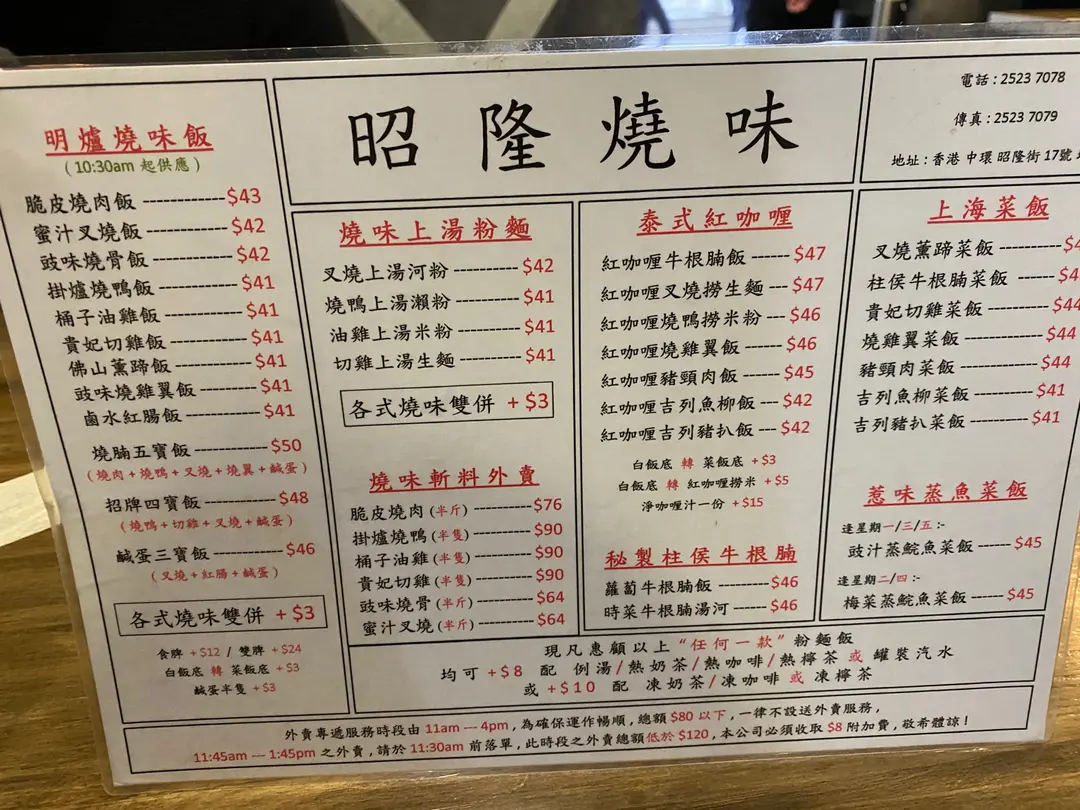 昭隆燒味
電話 : 2523 7078
傳真 : 2523 7079
地址 : 香港 中環 昭隆街 17號
明爐燒味飯
( 10:30am 起供應 )
脆皮燒肉飯 ------------$43
蜜汁叉燒飯 ------------ $42
豉味燒骨飯 ------------ $42
掛爐燒鴨飯 ------------ $41
桶子油雞飯 ------------ $41
貴妃切雞飯 ------------ $41
佛山薰蹄飯 ------------ $41
豉味燒雞翼飯 --------- $41
鹵水紅腸飯 ------------ $41
燒腩五寶飯 ------------ $50
( 燒肉 + 燒鴨 + 叉燒 + 燒翼 + 鹹蛋 )
招牌四寶飯 ------------ $48
( 燒鴨 + 切雞 + 叉燒 + 鹹蛋 )
鹹蛋三寶飯 ------------ $46
( 叉燒 + 紅腸 + 鹹蛋 )
各式燒味雙併 + $3
食牌 + $12 / 雙牌 + $24
白飯底 轉 菜飯底 + $3
鹹蛋半隻 + $3
燒味上湯粉麵
叉燒上湯河粉 ---------- $42
燒鴨上湯瀨粉 ---------- $41
油雞上湯米粉 ---------- $41
切雞上湯生麵 ---------- $41
各式燒味雙併 + $3
燒味斬料外賣
脆皮燒肉 (半斤) ---------- $76
掛爐燒鴨 (半隻) ---------- $90
桶子油雞 (半隻) ---------- $90
貴妃切雞 (半隻) ---------- $90
豉味燒骨 (半斤) ---------- $64
蜜汁叉燒 (半斤) ---------- $64
泰式紅咖喱
紅咖喱牛根腩飯 ------ $47
紅咖喱叉燒撈生麵 --- $47
紅咖喱燒鴨撈米粉 --- $46
紅咖喱燒雞翼飯 ------ $46
紅咖喱豬頸肉飯 ------ $45
紅咖喱吉列魚柳飯 --- $42
紅咖喱吉列豬扒飯 --- $42
白飯底 轉 菜飯底 + $3
白飯底 轉 紅咖喱撈米 + $5
淨咖喱汁一份 + $15
秘製柱侯牛根腩
蘿蔔牛根腩飯 --------- $46
時菜牛根腩湯河 ------ $46
上海菜飯
叉燒薰蹄菜飯 ---------
柱侯牛根腩菜飯 ------
貴妃切雞菜飯 --------- $44
燒雞翼菜飯 ------------ $44
豬頸肉菜飯 ------------ $44
吉列魚柳菜飯 --------- $41
吉列豬扒菜飯 --------- $41
惹味蒸魚菜飯
逢星期一/三/五 :-
豉汁蒸鯇魚菜飯 ------ $45
逢星期二/四 :-
梅菜蒸鯇魚菜飯 ------ $45
現凡惠顧以上 “任何一款” 粉麵飯
均可 + $8 配 例湯/熱奶茶/熱咖啡/熱檸茶 或 罐裝汽水
或 + $10 配 凍奶茶/凍咖啡 或 凍檸茶
外賣專遞服務時段由 11am --- 4pm , 為確保運作暢順 , 總額 $80 以下 , 一律不設送外賣服務 ,
11:45am --- 1:45pm 之外賣 , 請於 11:30am 前落單 , 此時段之外賣總額低於 $120 , 本公司必須收取 $8 附加費 , 敬希體諒 !